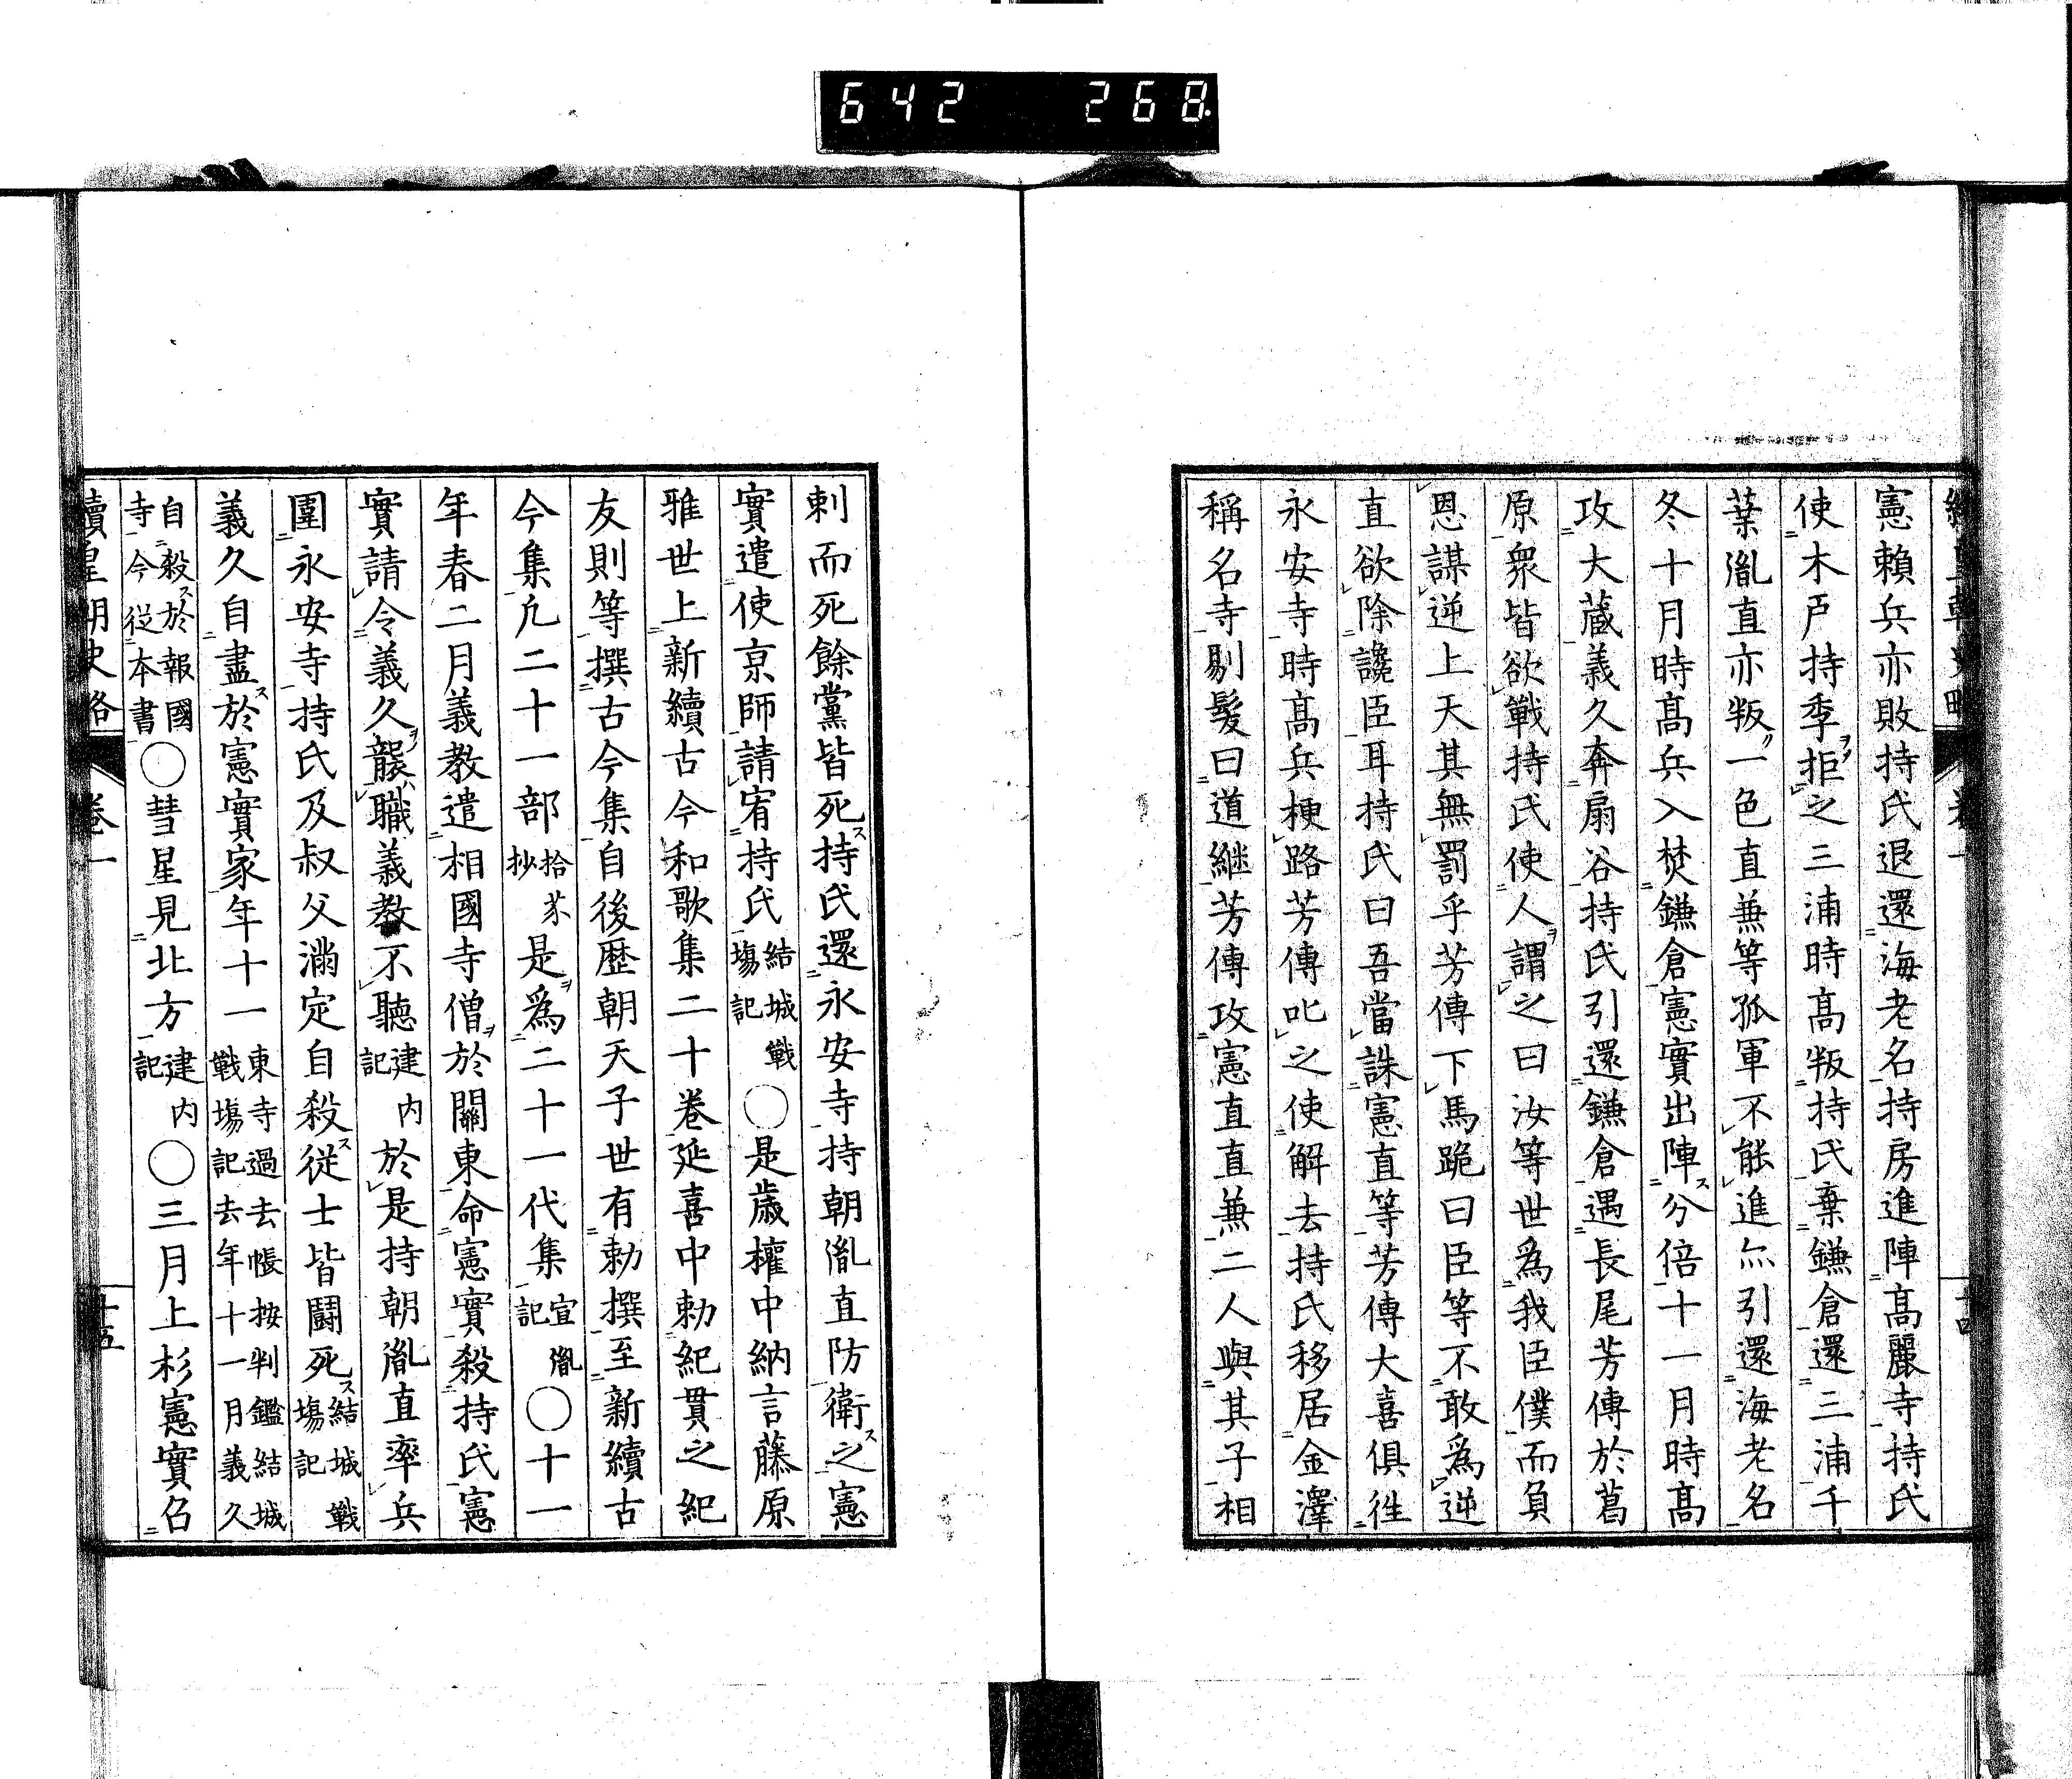 642 268
憲賴兵亦敗持氏退還海老名持房進陣高麗寺持氏
使木戸持季拒之三浦時高叛持氏棄鎌倉還三浦千
葉胤直亦叛一色直兼等孤軍不能進亦引還海老名
冬十月時高兵入焚鎌倉憲實出陣分倍十一月時高
攻大蔵義久奔扇谷持氏引還鎌倉遇長尾芳傳於葛
原衆皆欲戰持氏使人謂之曰汝等世爲我臣僕而負
恩謀逆上天其無罰乎芳傳下馬跪曰臣等不敢爲逆
直欲除讒臣耳持氏曰吾當誅憲直等芳傳大喜俱徃
永安寺時高兵梗路芳傳叱之使解去持氏移居金澤
稱名寺剔髮曰道継芳傳攻憲直直兼二人與其子相
刺而死餘黨皆死持氏還永安寺持朝胤直防衛之憲
實遣使京師請宥持氏結城戰場記〇是歲權中納言藤原
雅世上新續古今和歌集二十卷延喜中勅紀貫之紀
友則等撰古今集自後歷朝天子世有勅撰至新續古
今集凢二十一部拾芥抄是爲二十一代集宣胤記〇十一
年春二月義教遣相國寺僧於關東命憲實殺持氏憲
實請令義久襲職義教不聽建内記於是持朝胤直率兵
圍永安寺持氏及叔父滿定自殺従士皆鬪死結城戰場記
義久自盡於憲實家年十一東寺過去帳按判鑑結城戰場記去年十一月義久
自殺於報國寺今従本書〇彗星見北方建内記〇三月上杉憲實召
續皇朝史略 卷一 十五